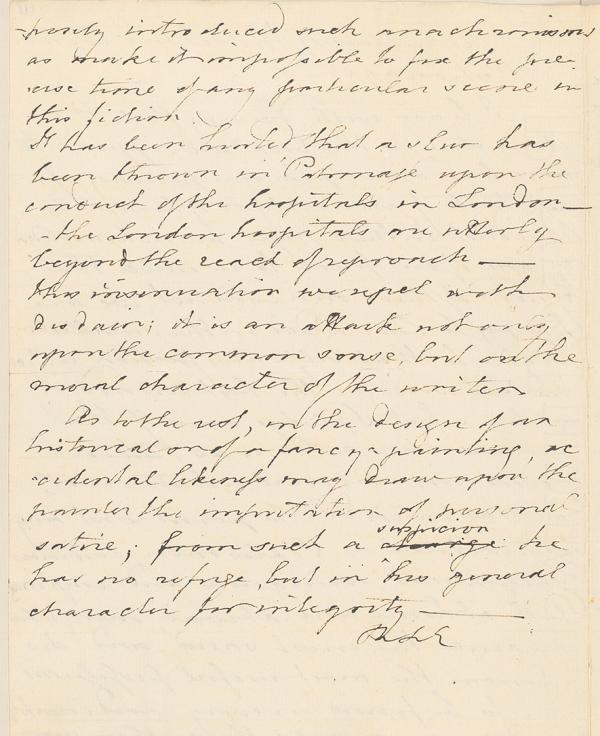 -posely introduced such anachronisms
as make it impossible to fix the pre-
-cise time of any particular scene in
this fiction.
It has been hinted that a slur has
been thrown in Patronage upon the
conduct of the hospitals in London—
-the London hospitals are utterly
beyond the reach of reproach—
this insinuation we repel with
disdain; it is an attack not only
upon the common sense, but on the
moral character of the writer
As to the rest, in the design of an
historical or of a fancy-painting, ac
-cidental likeness may draw upon the
painter the imputation of personal
suspicion
satire; from such a charge he
has no refuge, but in his general
character for integrity—